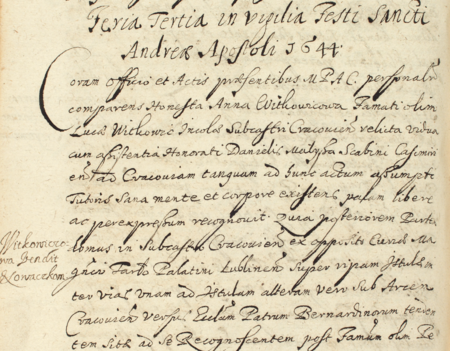 Feria Tertia in vigilia Festi Sancti
Andreæ Apostoli 1644
Coram officio et Actis præsentibus M.P.A.C. personalr
comparens Honesta Anna Witkowicowa Famati olim
Lucæ Witkowic Incolæ Subcastri Cracovien relicta vidua
cum assistentia Honorati Danielis Scabini Casimiri
en ad Cracoviam tanquam ad hunc actum assumpti
Tutoris sana mente et corpore existens, palam libere
ac per expressum recognovit. Quia posteriorem Parte
domus in Subcastro Cracovien ex oppositi Curiæ Ma
gnci Palatini Lublinen super ripam Istulæ in
ter vias unam ad Istulam alteram vero sub Arcem
Cracovien versus Patrum Bernardinorum
tem sitæ ad se Recognoscentem post Famum olim
Witkowicco
wa
Kowaczkom